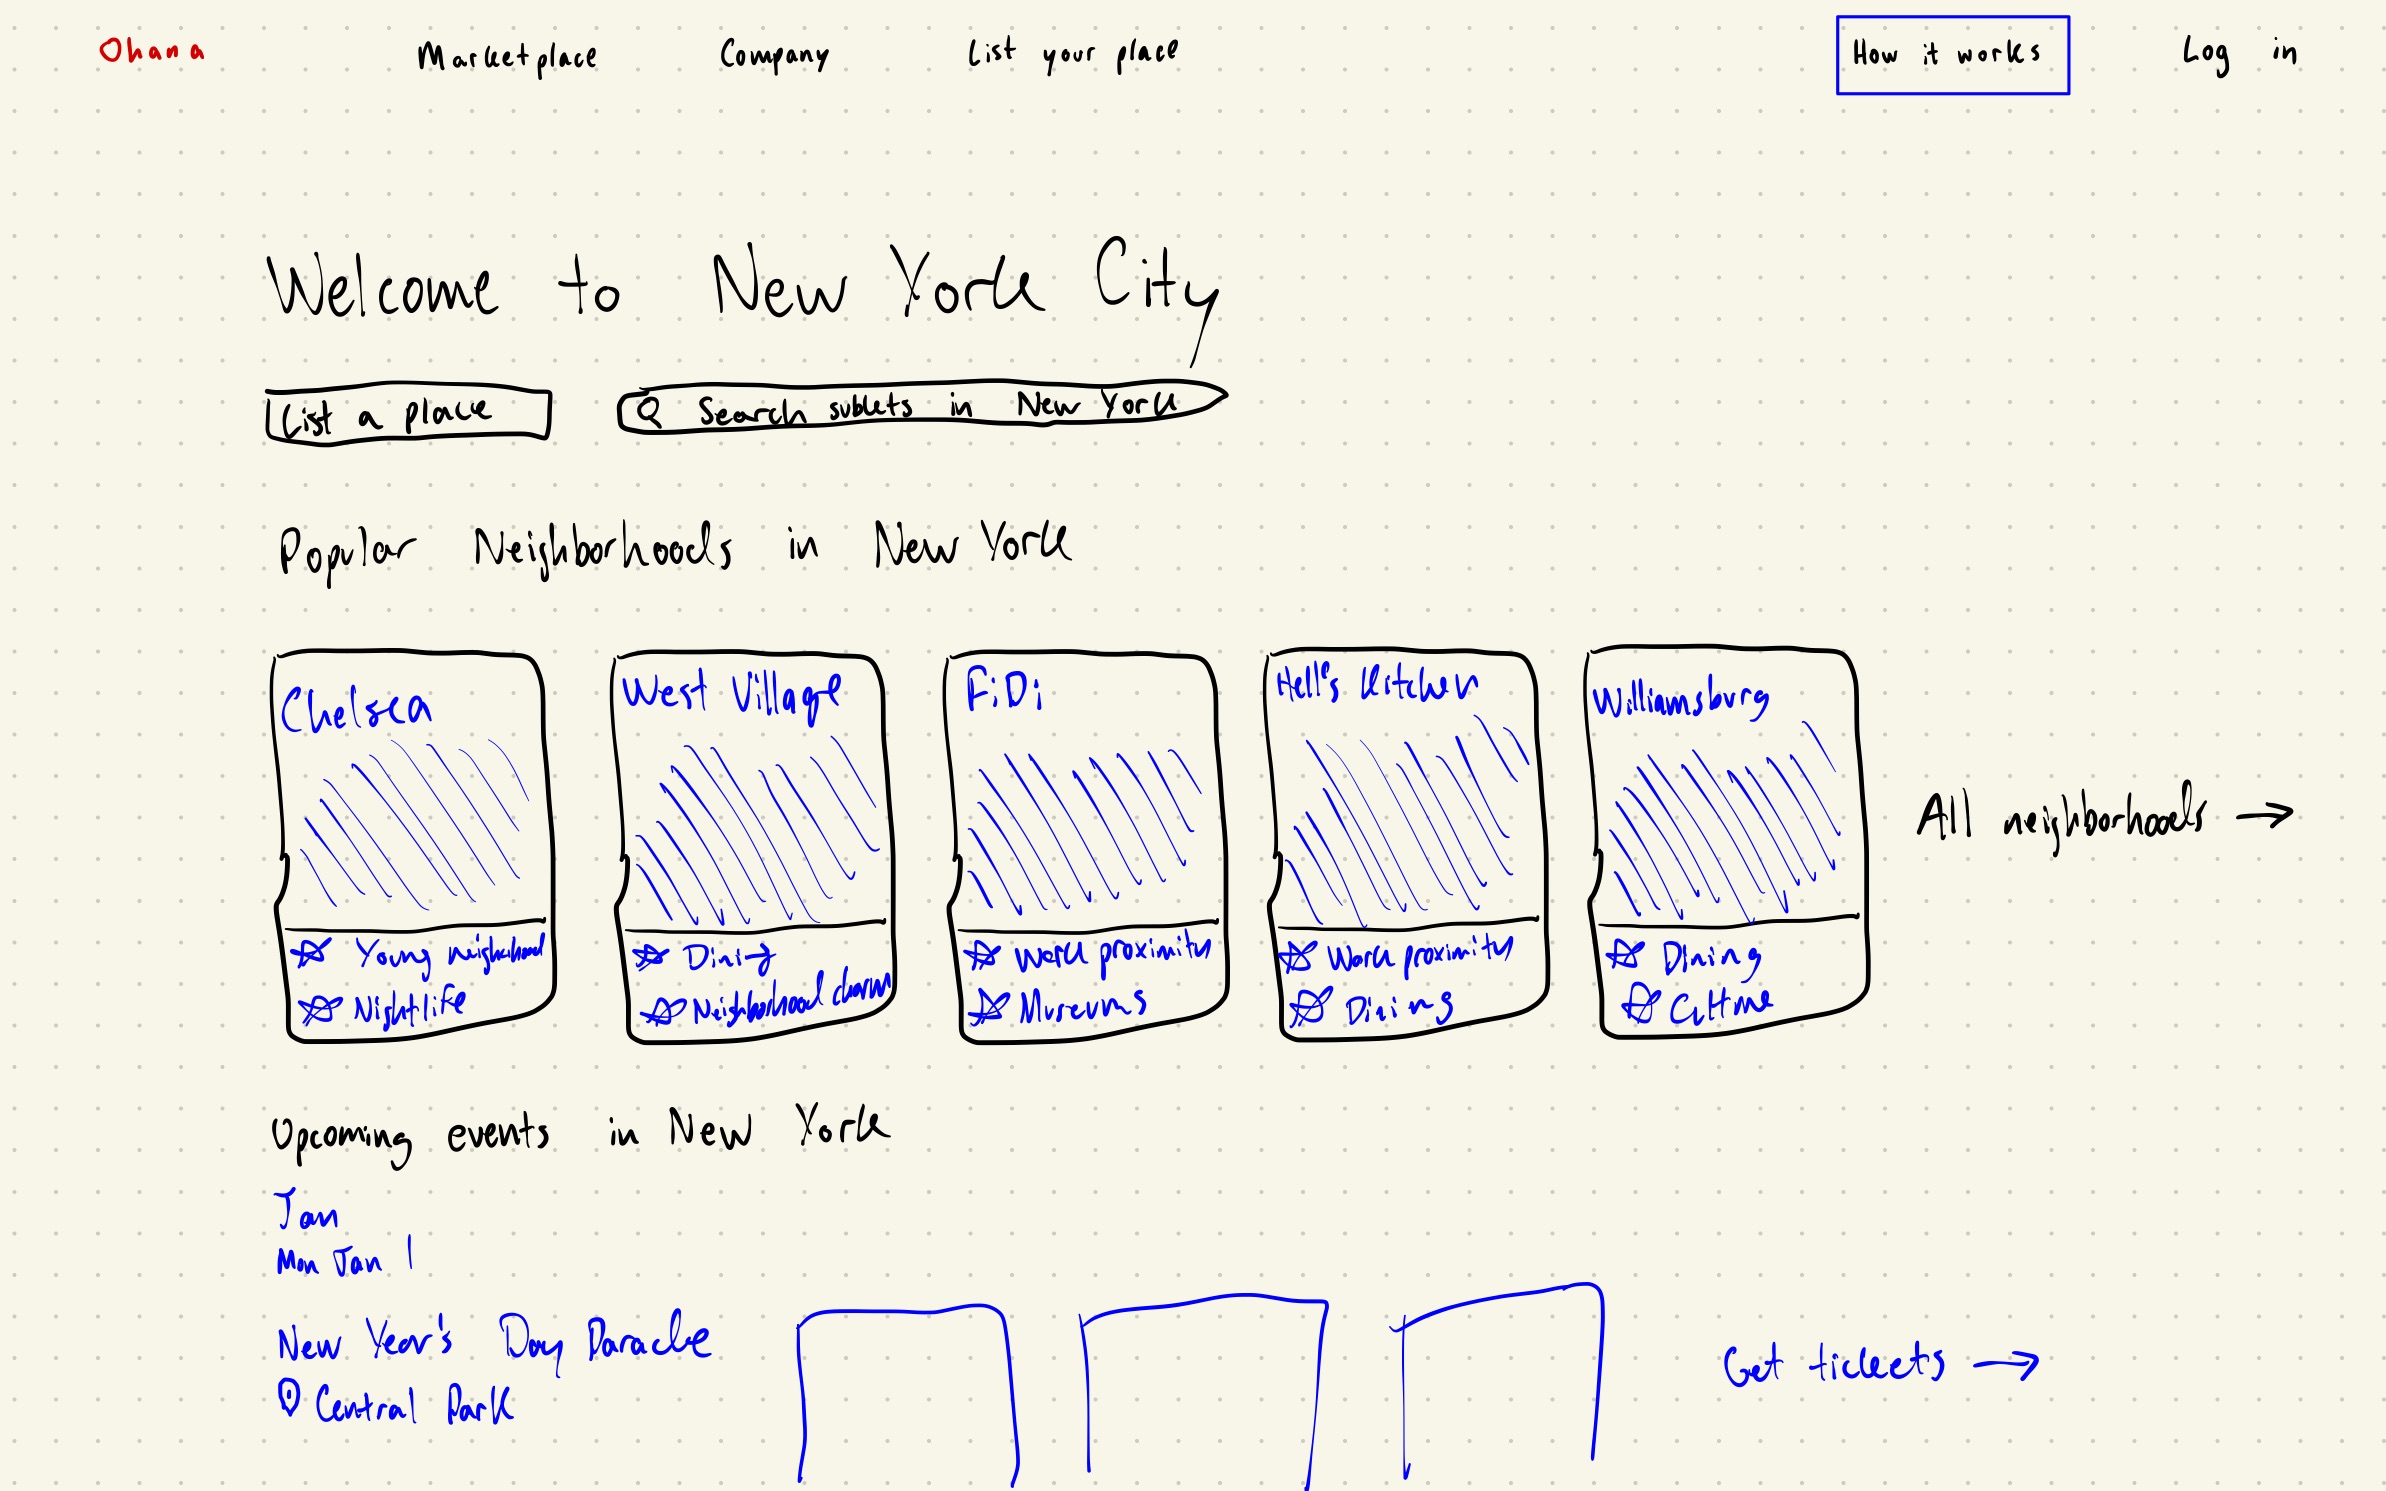 Ohana Marketplace Company List your place How it works Log in
Welcome to New York City
List a place
Search sublets in New York
Popular Neighborhoods in New York
Chelsea
Young neighborhood
Nightlife
West Village
Dining
Neighborhood charm
FiDi
Work proximity
Museums
Hell's Kitchen
Work proximity
Dining
Williamsburg
Dining
Culture
All neighborhoods →
Upcoming events in New York
Jan
Mon Jan 1
New Year's Day Parade
Central Park
Get tickets →